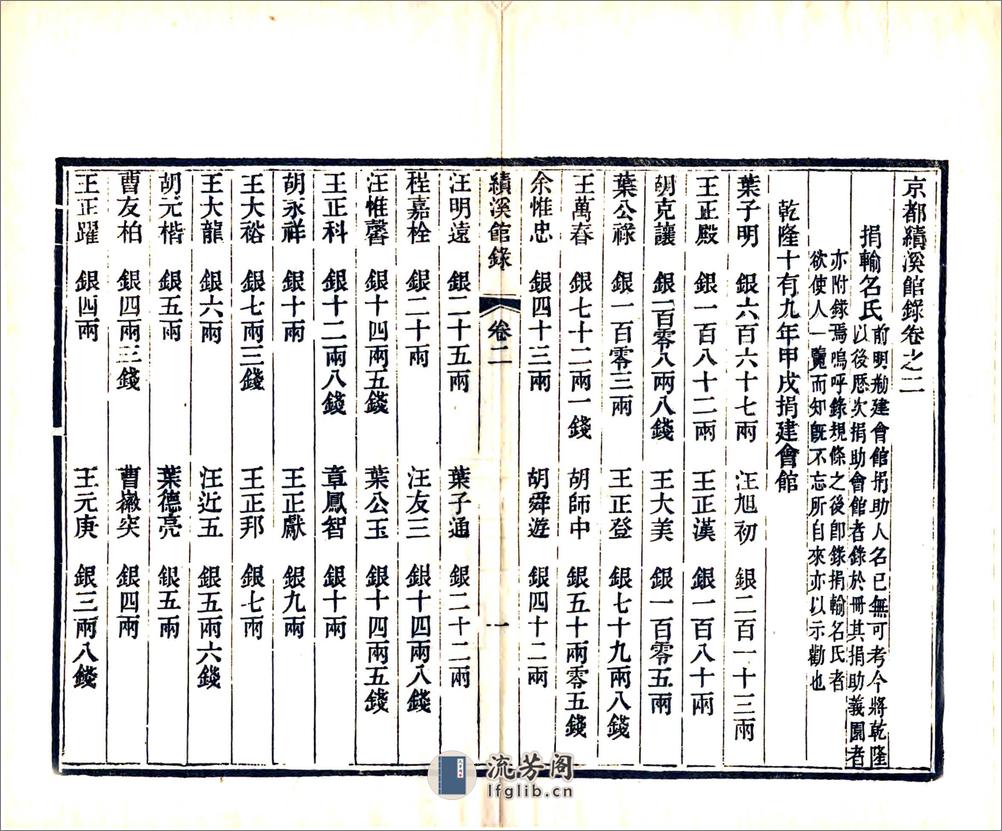 京都績溪館錄卷之二
捐輸名氏
前明剙建會館捐助人名已無可考今將乾隆
以後歷次捐助會館者錄於冊其捐助義園者
亦附錄焉嗚呼錄規條之後卽錄捐輸名氏者
欲使人一覽而知旣不忘所自來亦以示勸也
乾隆十有九年甲戌捐建會館
葉子明 銀六百六十七兩 汪旭初 銀二百一十三兩
王正殿 銀一百八十二兩 王正漢 銀一百八十兩
胡克讓 銀一百零八兩八錢 王大美 銀一百零五兩
葉公祿 銀一百零三兩 王正登 銀七十九兩八錢
王萬春 銀七十二兩一錢 胡師中 銀五十兩零五錢
余惟忠 銀四十三兩 胡舜遊 銀四十二兩
績溪館錄 卷二 一
汪明遠 銀二十五兩 葉子通 銀二十二兩
程嘉栓 銀二十兩 汪友三 銀十四兩八錢
汪惟馨 銀十四兩五錢 葉公玉 銀十四兩五錢
王正科 銀十二兩八錢 章鳳智 銀十兩
胡永祥 銀十兩 王正獻 銀九兩
王大裕 銀七兩三錢 王正邦 銀七兩
王大龍 銀六兩 汪近五 銀五兩六錢
胡元楷 銀五兩 葉德亮 銀五兩
曹友柏 銀四兩三錢 曹巌突 銀四兩
王正躍 銀四兩 王元庚 銀三兩八錢
流芳阁
lfglib.cn